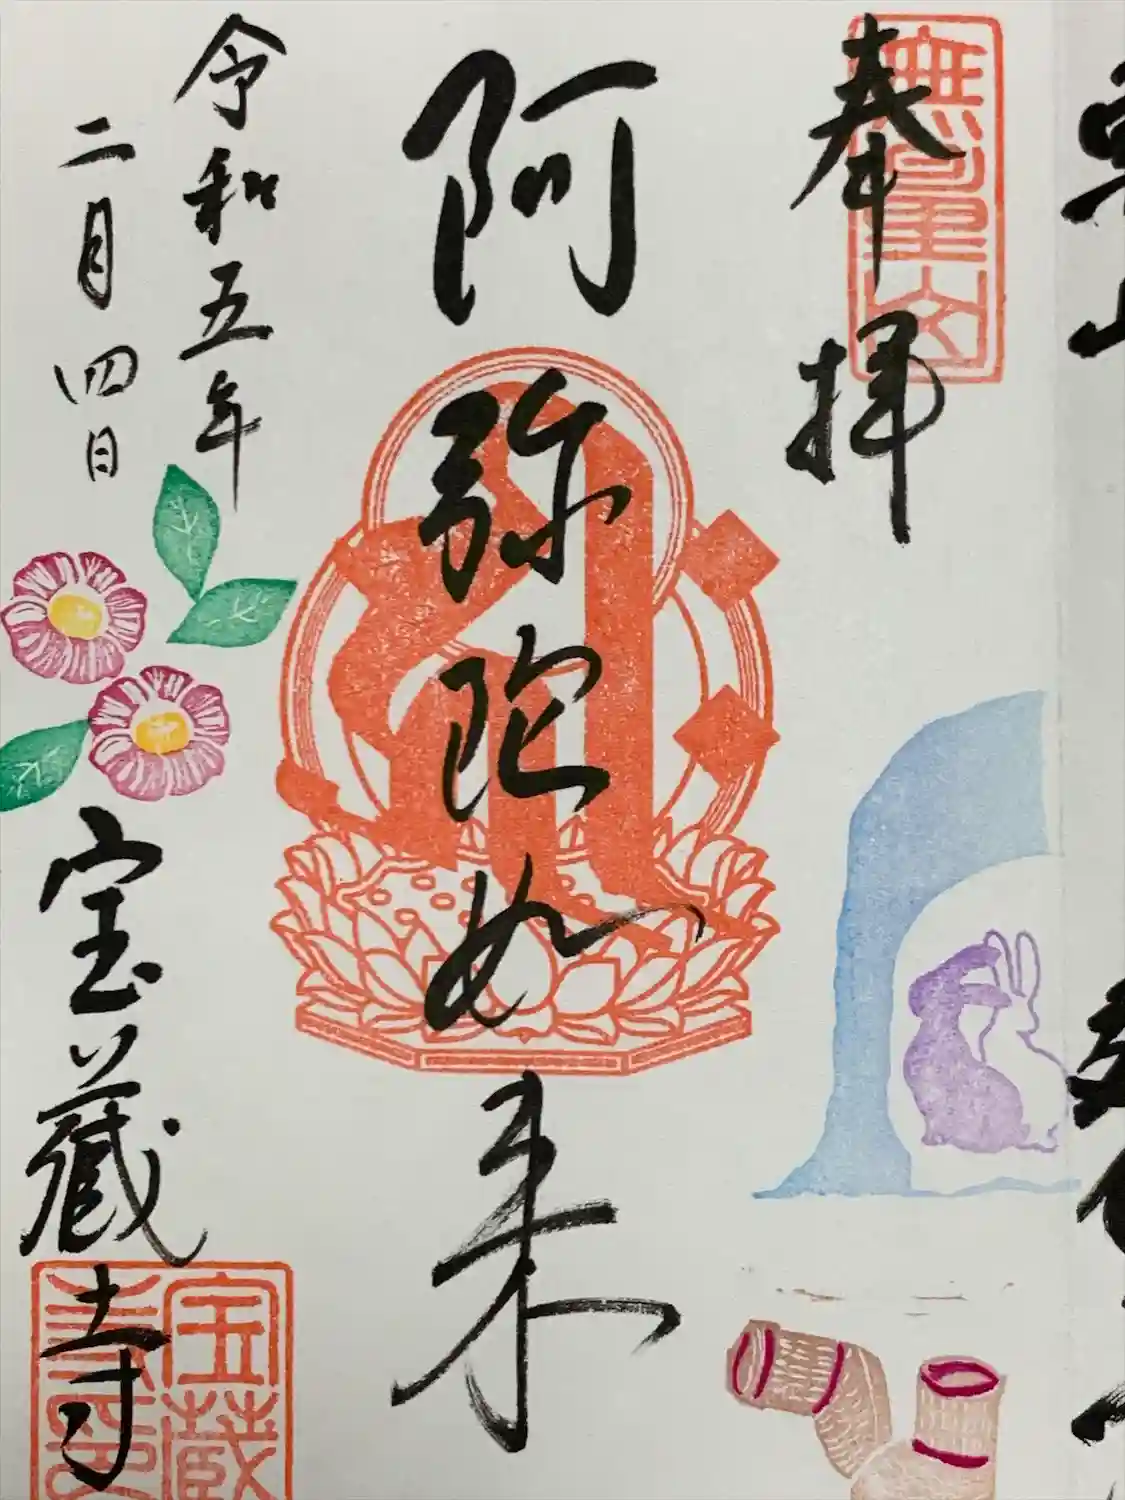 奉拝
無量山
阿弥陀如来
令和五年
二月四日
宝蔵寺
宝蔵
寺印